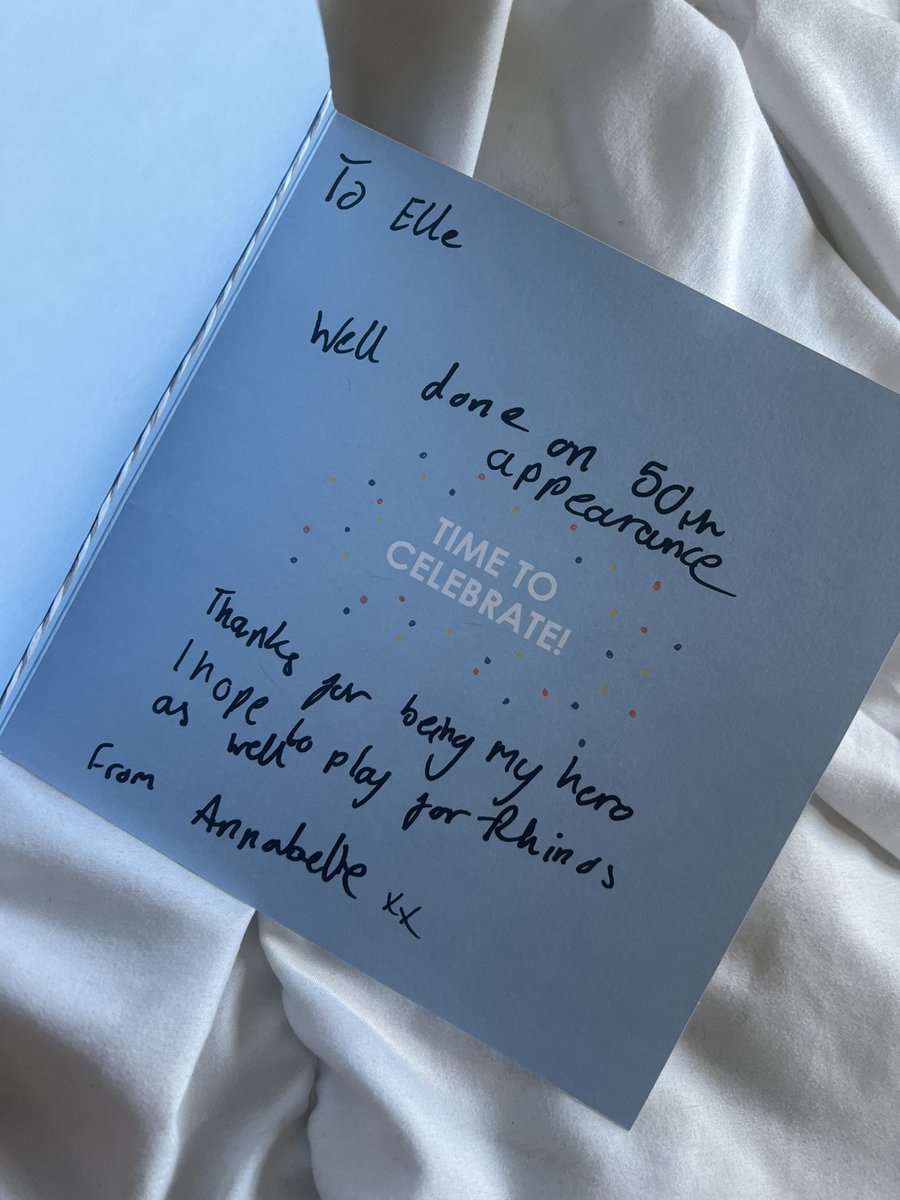 To Elle
Well done on 50th
appearance
TIME TO
CELEBRATE!
Thanks for being my hero
I hope to play for Rhinos
as well
From Annabelle xx